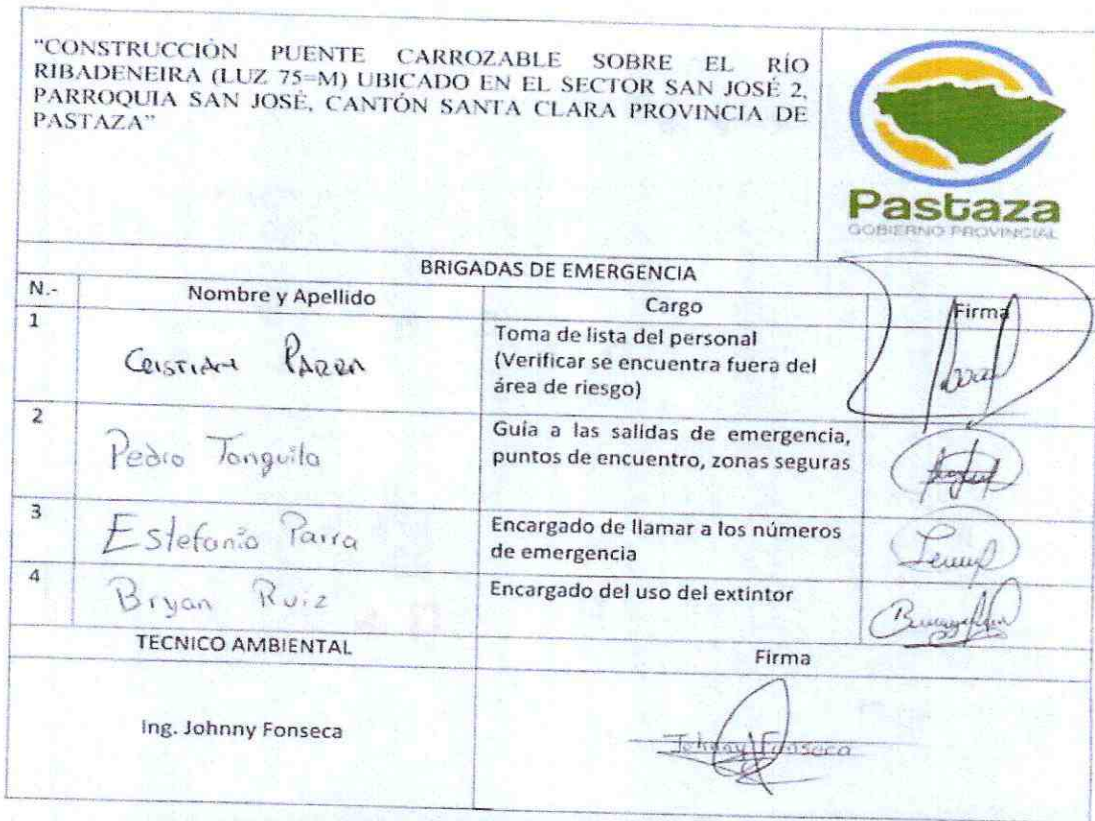 "CONSTRUCCIÓN PUENTE CARROZABLE SOBRE EL RÍO
RIBADENEIRA (LUZ 75=M) UBICADO EN EL SECTOR SAN JOSÉ 2,
PARROQUIA SAN JOSÉ, CANTÓN SANTA CLARA PROVINCIA DE
PASTAZA"
Pastaza
GOBIERNO PROVINCIAL
BRIGADAS DE EMERGENCIA
N.- Nombre y Apellido Cargo Firma
1 CRISTIAN PARRA Toma de lista del personal
(Verificar se encuentra fuera del
área de riesgo)
2 Pedro Tanguila Guía a las salidas de emergencia,
puntos de encuentro, zonas seguras
3 Estefania Parra Encargado de llamar a los números
de emergencia
4 Bryan Ruiz Encargado del uso del extintor
TECNICO AMBIENTAL Firma
Ing. Johnny Fonseca Johnny Fonseca